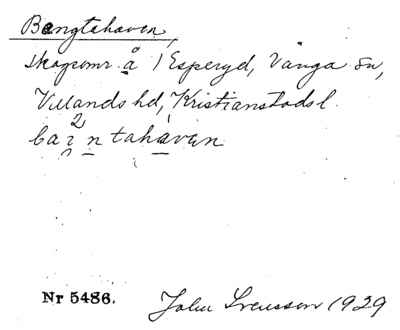 Bengtahaven,
skogsomr å 1 Esperyd, Vånga sn,
Villands hd, Kristianstads l.
bantahaven
Nr 5486.
John Svensson 1929